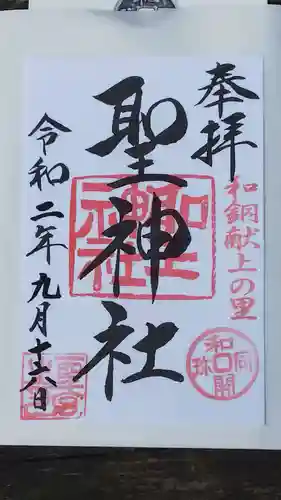 奉拝
和銅献上の里
聖神社
令和二年九月十六日
和同開珎